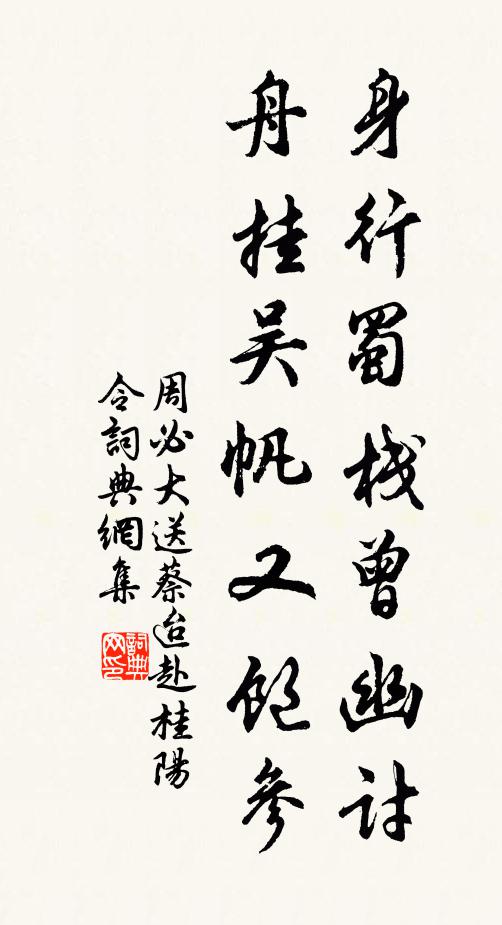 身行蜀栈曾幽討
舟挂吴帆又飽參
周必大送蔡迨赴桂陽
令詞典網集
詞典
网印